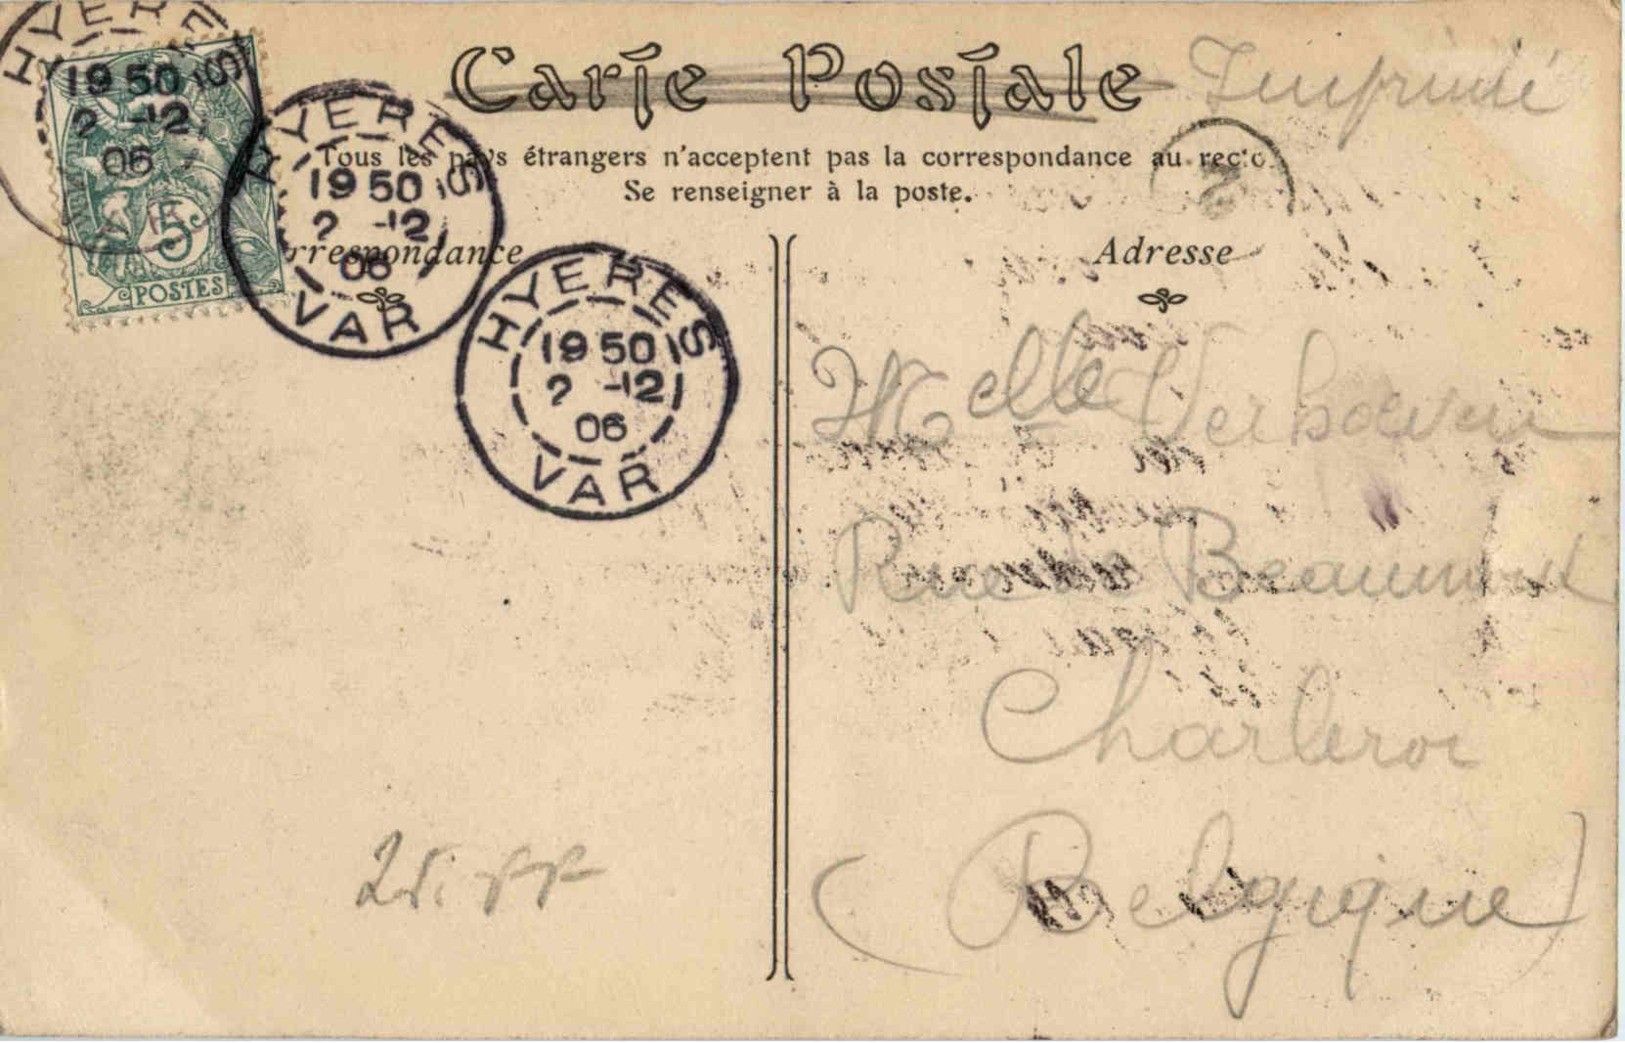 Carte Postale Imprimé
Tous les pays étrangers n'acceptent pas la correspondance au recto.
Se renseigner à la poste.
HYERES
19 50
2 -12
06
5
POSTES
HYERES
19 50
2 -12
06
VAR
Correspondance
HYERES
19 50
2 -12
06
VAR
2
Adresse
Melle Verhoeven
Rue de Beaumont
Charleroi
(Belgique)